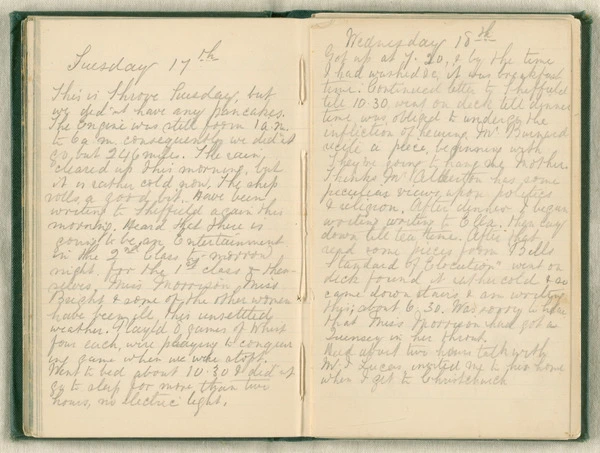 Tuesday 17th
This is Shrove Tuesday, but
we did'nt have any pancakes.
The Engine was still from 1 a.m.
to 6 a.m. consequently we did'nt
go, but 246 miles. The rain
cleared up this morning, but
it is rather cold now. The ship
rolls a good bit. Have been
writing to Sheffield again this
morning. Heard that there is
going to be an Entertainment
in the 2nd Class to-morrow
night, for the 1st class & them-
selves. Miss Morrison Miss
& some of the other women
have been ill, this unsettled
weather. Played 8 games of Whist
four each, were playing the conquer-
ing game when we were stopt.
Went to bed about 10.30 & did'nt
go to sleep for more than two
hours, no electric light.
Wednesday 18th
Got up at 7.20, & by the time
I had washed &c, it was breakfast
time. Continued letter to Sheffield
till 10.30 went on deck till dinner
time was obliged to undergo the
infliction of hearing Mr
recite a piece, beginning with
They're going to hang me Mother.
Thinks Mr Alderton has some
peculiar views upon politics
& religion. After dinner I began
writing writing to Ella. Then lay
down till tea time. After that
read some pieces from "Bells
Standard of Elocution" went on
deck found it rather cold & so
came down stairs & am writing
this, about 6.30. Was sorry to hear
that Miss Morrison had got a
in her throat.
Had about two hours talk with
Mr & Lucas invited me to her home
when I get to Christchurch